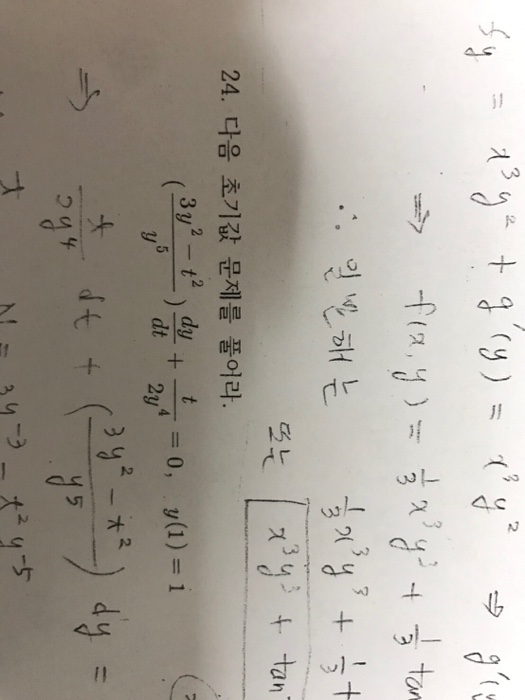 fy = x³y² + g'(y) = x³y² ⇒ g'(
⇒ f(x,y) = 1/3 x³y³ + 1/3 tan
∴ 일반해는 1/3 x³y³ + 1/3 t
또는 x³y³ + tan
24. 다음 초기값 문제를 풀어라.
((3y² - t²)/y⁵) dy/dt + t/(2y⁴) = 0, y(1) = 1
⇒ t/(2y⁴) dt + ((3y² - t²)/y⁵) dy =
N = 3y⁻³ - t²y⁻⁵